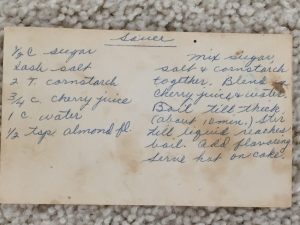 Sauce
1/2 C sugar
Dash salt
2 T. cornstarch
3/4 c. cherry juice
1 c. water
1/2 tsp almond fl.
Mix sugar,
salt & cornstarch
together. Blend
Cherry juice & water.
Boil till thick
(about 10 min.) Stir
till liquid reaches
boil. Add flavoring
Serve hot on cake.